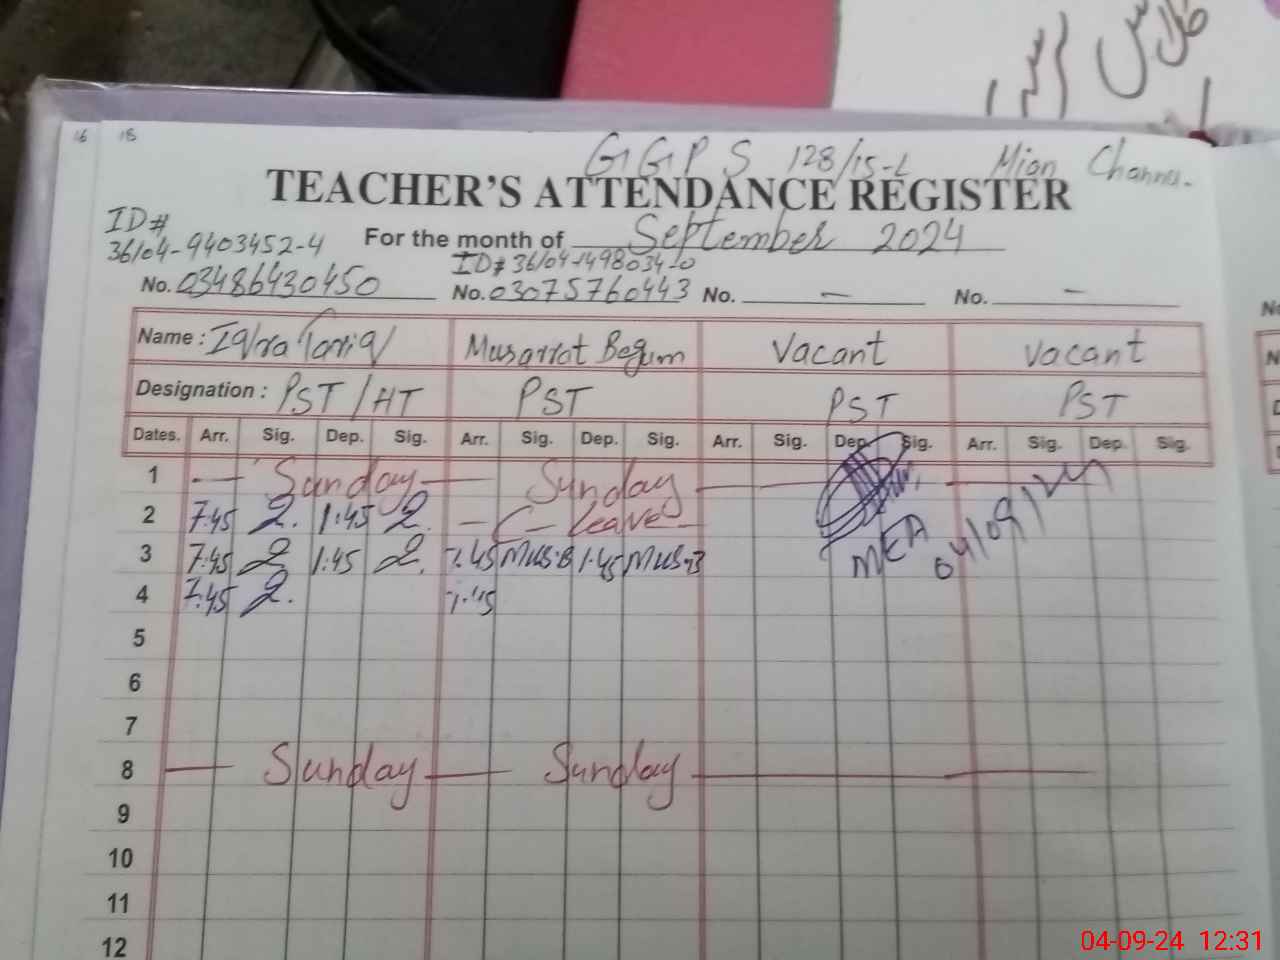 16 18
GGPS 128/15-L Mian Channu.
TEACHER'S ATTENDANCE REGISTER
ID# 36104-9403452-4
For the month of September 2024
ID# 36104-1498034-0
No. 03486430450 No. 03075760443 No. — No. —
Name : Iqra Tariq Musarrat Begum Vacant Vacant
Designation : PST/HT PST PST PST
Dates. Arr. Sig. Dep. Sig. Arr. Sig. Dep. Sig. Arr. Sig. Dep. Sig. Arr. Sig. Dep. Sig.
1 — Sunday — Sunday —
2 7:45 1:45 — Leave —
3 7:45 1:45 7:45 Mus.B 1:45 Mus.B
MEA 04/09/24
4 7:45 7:45
5
6
7
8 — Sunday — Sunday —
9
10
11
12
04-09-24 12:31